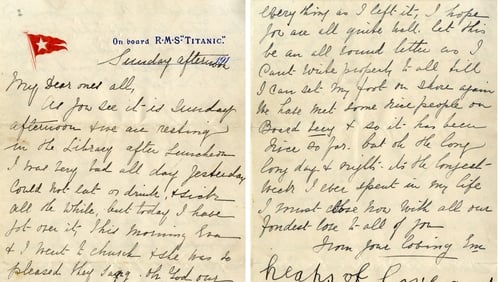 On board R.M.S "TITANIC."
Sunday afternoon
My Dear ones all,
As you see it is Sunday
afternoon & we are resting
in the Library after Luncheon
I was very bad all day yesterday
Could not eat or drink, & sick
all the while, but today I have
got over it, This morning Eva
& I went to church & she was so
pleased they sang. Oh God our
everything as I left it, I hope
you are all quite well. let this
be an all round letter as I
Can't write properly to all till
I can set my foot on shore again
We have met some nice people on
Board & so it has been
nice so far. but oh the long
long day & nights. it's the longest
week I ever spent in my life
I must close now with all our
Fondest love to all of you
From your loving Em
heaps of